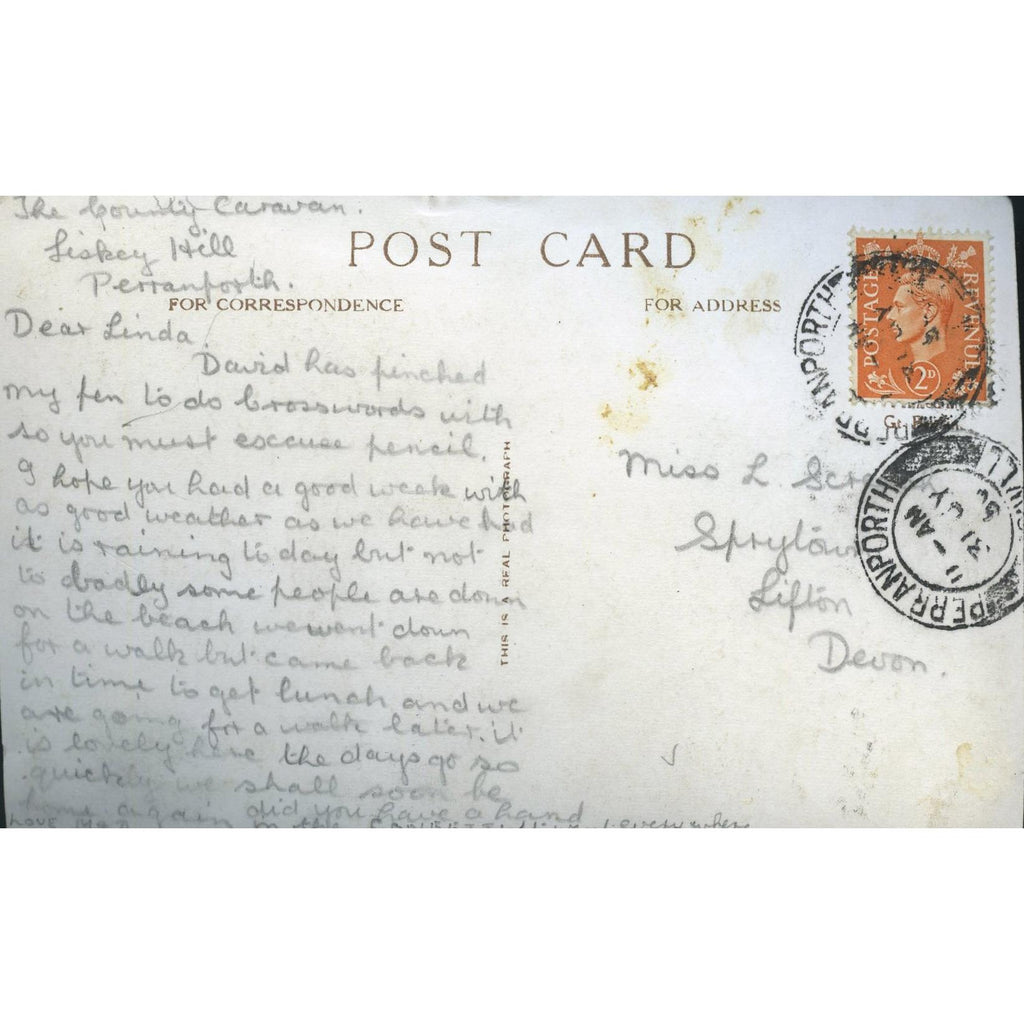 The County Caravan.
Liskey Hill
Perranporth.
POST CARD
FOR CORRESPONDENCE
FOR ADDRESS
Dear Linda
David has pinched
my pen to do Crosswords with
so you must excuse pencil.
I hope you had a good week with
as good weather as we have had
it is raining to day but not
to badly some people are down
on the beach we went down
for a walk but came back
in time to get lunch and we
are going for a walk later. it
is lovely here the days go so
quickly we shall soon be
home again did you have a hand
in the
THIS IS A REAL PHOTOGRAPH
Miss L.
Lifton
Devon.
POSTAGE
REVENUE
2D
PERRANPORTH
PERRANPORTH
11 - AM
31 JY